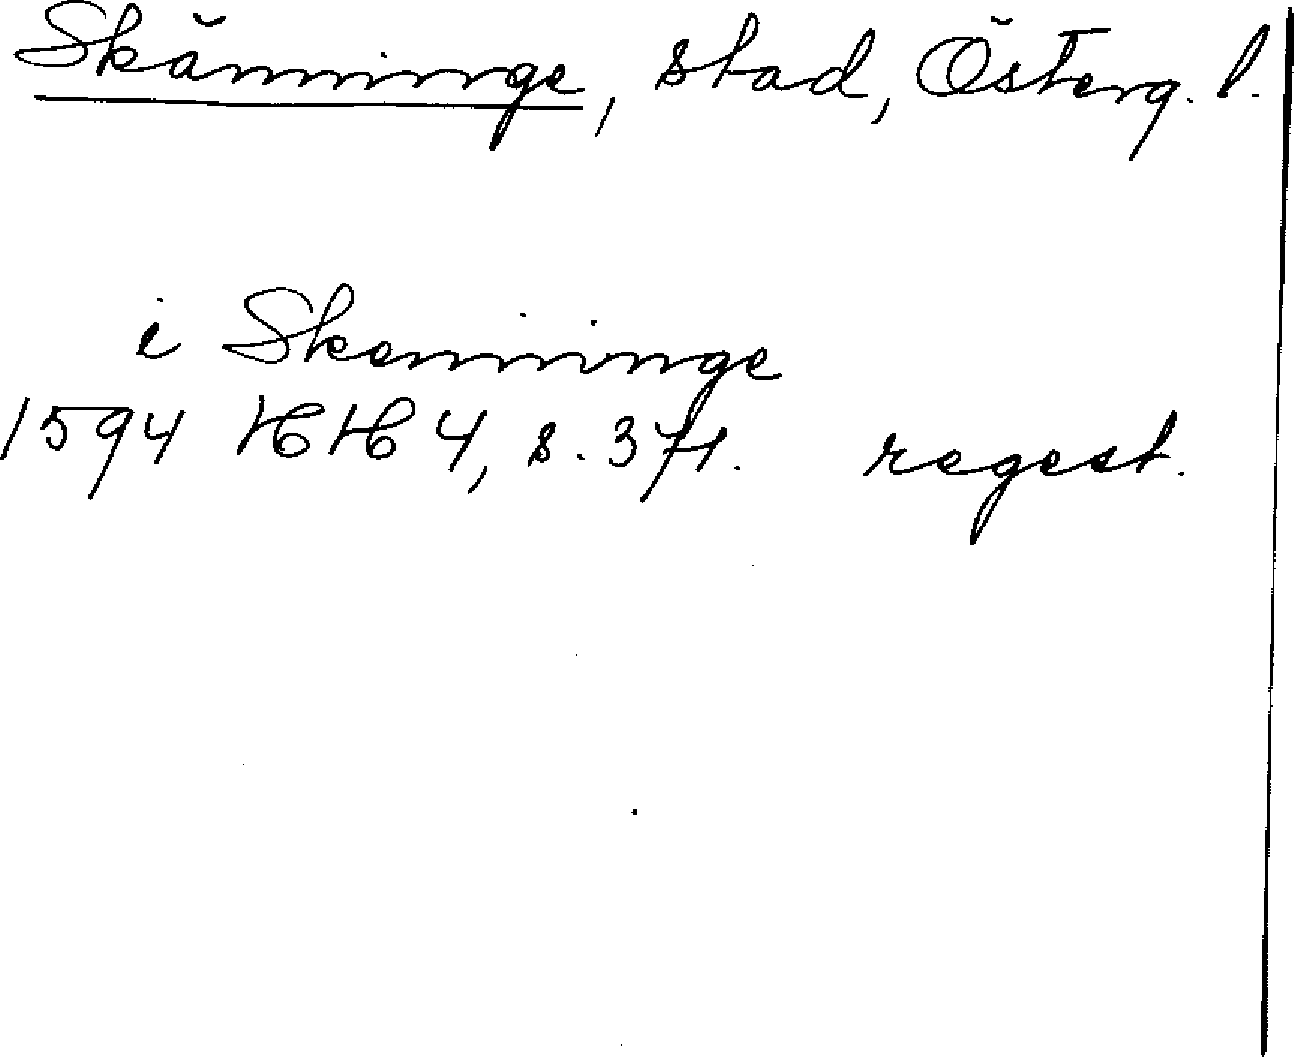 Skänninge, stad, Österg. l.
i Skenninge
1594 HH 4, s. 371. regest.